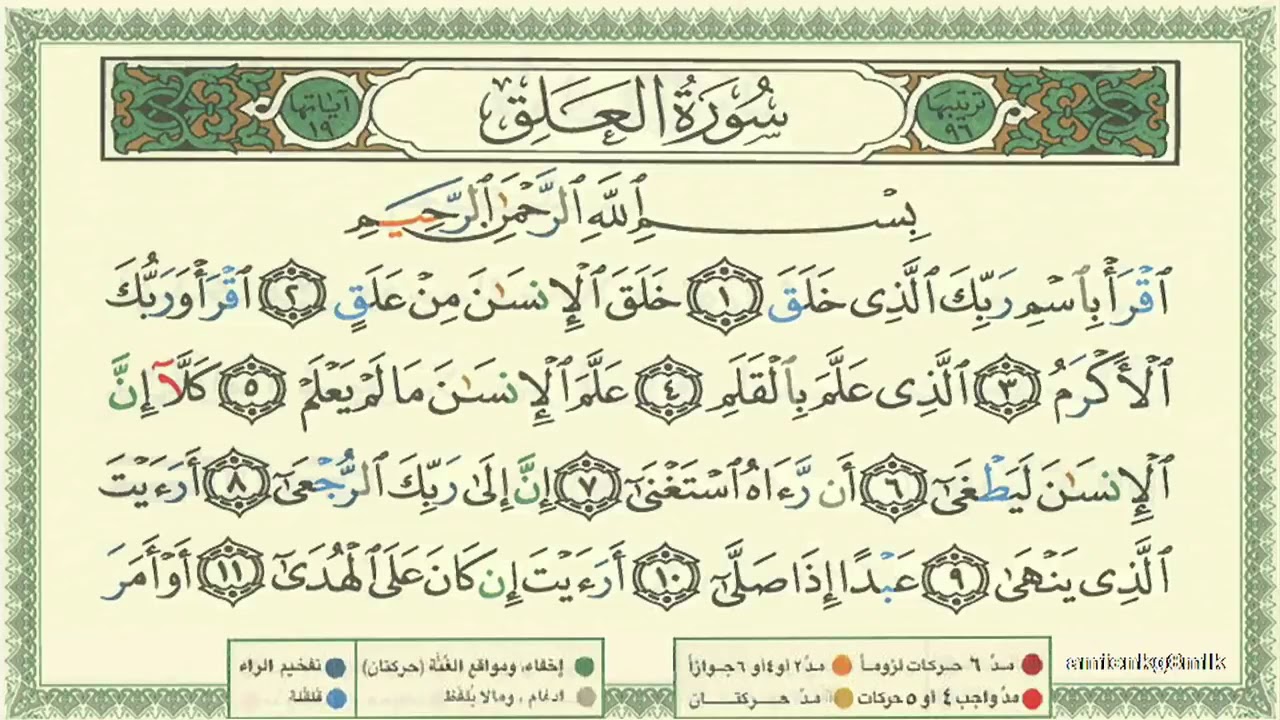 ترتيبها ٩٦ سُورَةُ الْعَلَقِ آياتها ١٩
بِسْمِ ٱللَّهِ ٱلرَّحْمَٰنِ ٱلرَّحِيمِ
ٱقْرَأْ بِٱسْمِ رَبِّكَ ٱلَّذِى خَلَقَ ١ خَلَقَ ٱلْإِنسَٰنَ مِنْ عَلَقٍ ٢ ٱقْرَأْ وَرَبُّكَ
ٱلْأَكْرَمُ ٣ ٱلَّذِى عَلَّمَ بِٱلْقَلَمِ ٤ عَلَّمَ ٱلْإِنسَٰنَ مَا لَمْ يَعْلَمْ ٥ كَلَّآ إِنَّ
ٱلْإِنسَٰنَ لَيَطْغَىٰٓ ٦ أَن رَّءَاهُ ٱسْتَغْنَىٰٓ ٧ إِنَّ إِلَىٰ رَبِّكَ ٱلرُّجْعَىٰٓ ٨ أَرَءَيْتَ
ٱلَّذِى يَنْهَىٰ ٩ عَبْدًا إِذَا صَلَّىٰٓ ١٠ أَرَءَيْتَ إِن كَانَ عَلَى ٱلْهُدَىٰٓ ١١ أَوْ أَمَرَ
amienkg8mlk
مدّ ٦ حركات لزوماً مدّ ٢ أو ٤ أو ٦ جوازاً
مدّ واجب ٤ أو ٥ حركات مدّ حركتان
إخفاء، ومواقع الغُنَّة (حركتان) تفخيم الراء
ادغام، ومالا يُلفَظ قلقلة